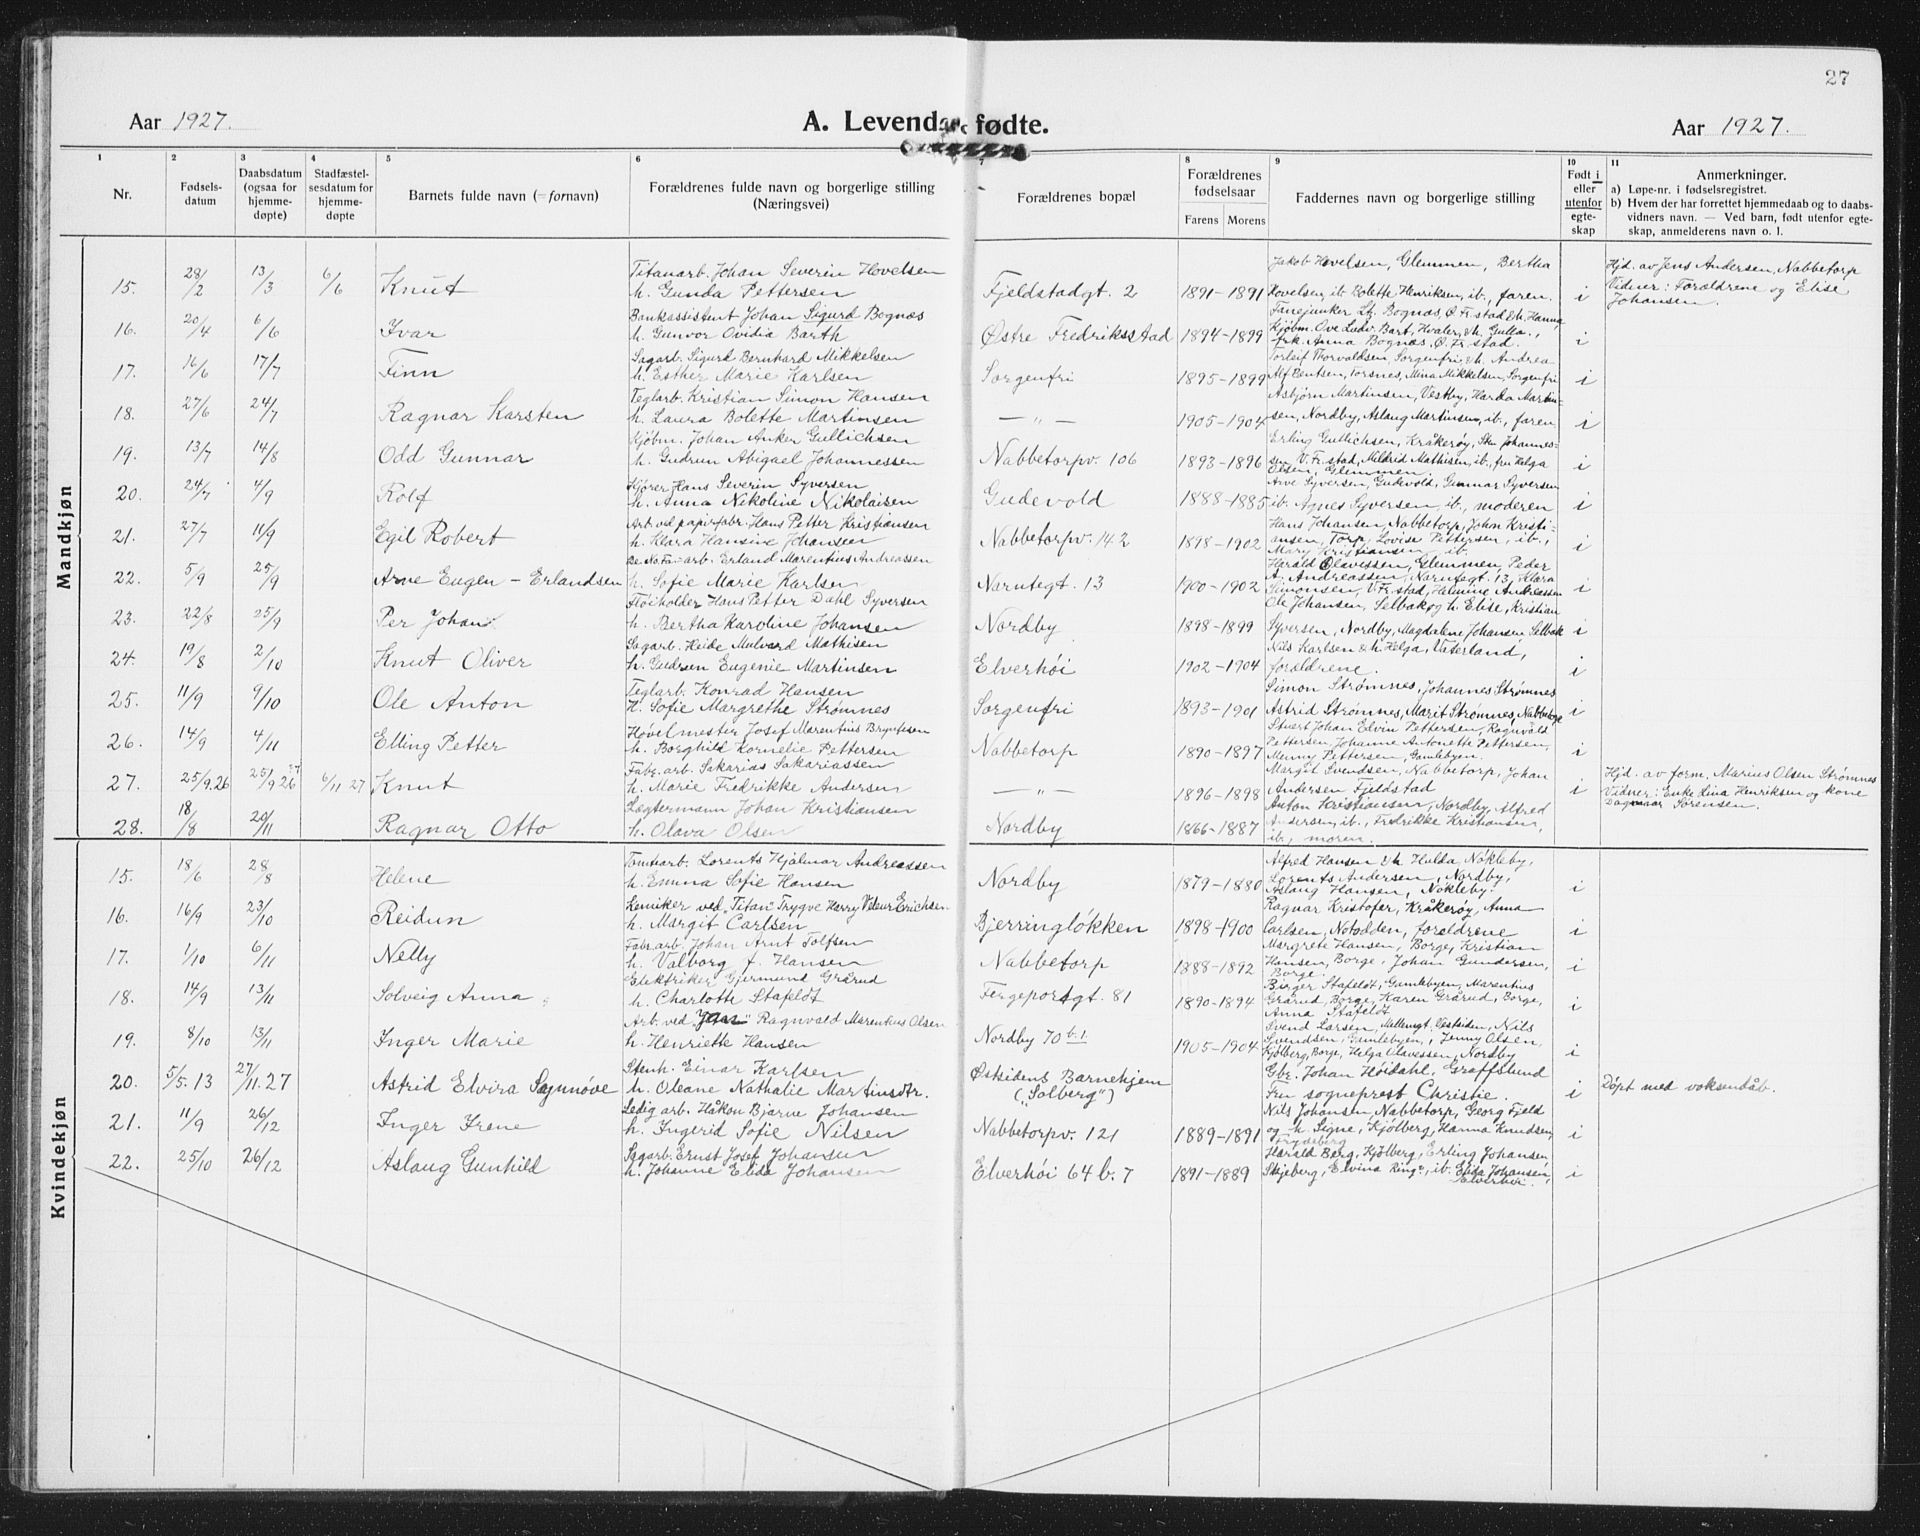 27
Aar 1927.
A. Levende fødte.
Aar 1927.
1 2 3 4 5 6 7 8 9 10 11
Nr.
Fødsels-
datum
Daabsdatum
(ogsaa for
hjemme-
døpte)
Stadfæstel-
sesdatum for
hjemme-
døpte
Barnets fulde navn (= fornavn)
Forældrenes fulde navn og borgerlige stilling
(Næringsvei)
Forældrenes bopæl
Forældrenes
fødselsaar
Farens Morens
Faddernes navn og borgerlige stilling
Født i
eller
utenfor
egte-
skap
Anmerkninger.
a) Løpe-nr. i fødselsregistret.
b) Hvem der har forrettet hjemmedaab og to daabs-
vidners navn. — Ved barn, født utenfor egte-
skap, anmelderens navn o. l.
Mandkjøn
15. 28/2 13/3 6/6 Knut
Titanarb. Johan Severin Hovelsen
h. Gunda Pettersen
Fjeldstadgt. 2 1891-1891
Jakob Hovelsen, Glemmen, Bertha
Hovelsen, ib. Bolette Henriksen, ib., faren. i
Hjd. av Jens Andersen, Nabbetorp
Vidner: Forældrene og Elise
Johansen.
16. 20/4 6/6 Ivar
Bankassistent Johan Sigurd Bognæs
h. Gunvor Ovidia Barth
Østre Fredriksstad 1894-1899
Fanejunker L. Bognæs, Ø. Fr.stad & h. Hanna,
Kjøbm. Ove Ludv. Bart, Hvaler, & h. Gulla.,
frk. Anna Bognæs, Ø. Fr.stad. i
17. 16/6 17/7 Finn
Sagarb. Sigurd Bernhard Mikkelsen
h. Esther Marie Karlsen
Sorgenfri 1895-1899
Torleif Thorvaldsen, Sorgenfri & h. Andrea
Alf Bentsen, Torsnes, Mina Mikkelsen, Sorgenfri i
18. 27/6 24/7 Ragnar Karsten
Teglarb. Kristian Simon Hansen
h. Laura Bolette Martinsen
— „ — 1905-1904
Asbjørn Martinsen, Vestby, Harda Martin-
sen, Nordby, Aslaug Martinsen, ib., faren i
19. 13/7 14/8 Odd Gunnar
Kjøbm. Johan Anker Gullichsen
h. Gudrun Abigael Johannessen
Nabbetorpv. 106 1893-1896
Erling Gullichsen, Kråkerøy, Johannes-
sen V. Fr.stad, Mildrid Mathisen, ib., fru Helga
Olsen, Glemmen. i
20. 24/7 4/9 Rolf
Kjører Hans Severin Syversen
h. Anna Nikoline Nikolaisen
Gudevold 1888-1885
Arve Syversen, Gudevold, Gunnar Syversen
ib. Agnes Syversen, ib., moderen i
21. 27/7 11/9 Egil Robert
Arb. ved papirfabr. Hans Petter Kristiansen
h. Klara Hansine Johansen
Nabbetorpv. 142 1898-1902
Hans Johansen, Nabbetorp, John Kristi-
ansen, Torp, Lovise Pettersen, ib.,
Mary Kristiansen, ib. i
22. 5/9 25/9 Arne Eugen - Erlandsen
De No Fa-arb. Erland Marentius Andreassen
h. Sofie Marie Karlsen
Narntegt. 13 1900-1902
Harald Olavessen, Glemmen, Peder
A. Andreassen, Narntegt. 13, Klara
Simonsen, V. Fr.stad, Helmine Andreassen i
23. 22/8 25/9 Per Johan
Fløiholder Hans Petter Dahl Syversen
h. Bertha Karoline Johansen
Nordby 1898-1899
Ole Johansen, Selbak og h. Elise, Kristian
Syversen, Nordby, Magdalene Johansen Selbak i
24. 19/8 2/10 Knut Oliver
Sagarb. Heide Mulvard Mathisen
h. Gudrun Eugenie Martinsen
Elverhøi 1902-1904
Nils Karlsen & h. Helga, Vaterland,
forældrene. i
25. 11/9 9/10 Ole Anton
Teglarb. Konrad Hansen
h. Sofie Margrethe Strømnes
Sorgenfri 1893-1901
Simon Strømnes, Johannes Strømnes
Astrid Strømnes, Marit Strømnes, Nabbetorp i
26. 14/9 4/11 Elling Petter
Høvelmester Josef Marentius Bryntesen
h. Borghild Kornelie Pettersen
Nabbetorp 1890-1897
Stuert Johan Elvin Pettersen, Ragnvald
Pettersen, Johanne Antonette Pettersen,
Munny Pettersen, Gamlebyen. i
27. 25/9.26 25/9 26 6/11 27 Knut
Fabr. arb. Sakarias Sakariassen
h. Marie Fredrikke Andersen
— „ — 1896-1898
Margit Svendsen, Nabbetorp, Johan
Andersen Fjeldstad i
Hjd. av form. Marius Olsen Strømnes
Vidner: Enke Lina Henriksen og kone
Dagmaar Sørensen.
28. 18/8 20/11 Ragnar Otto
Lægtermann Johan Kristiansen
h. Olava Olsen
Nordby 1866-1887
Anton Kristiansen, Nordby, Alfred
Andersen, ib., Fredrikke Kristiansen,
ib., moren.
Kvindekjøn
15. 18/6 28/8 Helene
Tomtarb. Lorents Hjalmar Andreassen
h. Emma Sofie Hansen
Nordby 1879-1880
Alfred Hansen & h Hulda, Nøkleby,
Lorents Andersen, Nordby,
Aslaug Hansen, Nøkleby. i
16. 16/9 23/10 Reidun
Kemiker ved „Titan" Trygve Harry Veleur Erichsen
h. Margit Carlsen
Bjerringløkken 1898-1900
Ragnar Kristofer, Kråkerøy, Anna
Carlsen, Notodden, foreldrene i
17. 1/10 6/11 Nelly
Fabr.arb. Johan Arnt Tolfsen
h. Valborg f. Hansen
Nabbetorp 1888-1892
Margrete Hansen, Borge, Kristian
Hansen, Borge, Johan Gundersen,
Borge. i
18. 14/9 13/11 Solveig Anna
Elektriker Gjermund Grårud
h. Charlotte Stafeldt
Fergeportgt. 81 1890-1894
Birger Stafeldt, Gamlebyen, Marentius
Grårud, Borge, Karen Grårud, Borge,
Anna Stafeldt i
19. 8/10 13/11 Inger Marie
Arb. ved Ragnvald Marentius Olsen
h. Henriette Hansen
Nordby 70 b.1 1905-1904
Svend Larsen, Mellemgt. Vestsiden, Nils
Svendsen, Gamlebyen, Jenny Olsen,
Kjølberg, Borge, Helga Olavessen, Nordby i
20. 5/5.13 27/11.27 Astrid Elvira Sagmnøve
Stenh. Einar Karlsen
h. Oleane Nathalie Martinsdtr.
Østsidens Barnehjem
(„Solberg")
Gbr. Johan Høidahl, Græsslund
Fru sogneprest Christie. i
Døpt med voksendåb.
21. 11/9 26/12 Inger Irene
Ledig arb. Håkon Bjarne Johansen
h. Ingerid Sofie Nilsen
Nabbetorpv. 121 1889-1891
Nils Johansen, Nabbetorp, Georg Fjeld
og h. Signe, Kjølberg, Hanna Knudsen,
Trydeberg i
22. 25/10 26/12 Aslaug Gunhild
Sagarb. Ernst Josef Johansen
h. Johanne Elida Johansen
Elverhøi 64 b. 7 1891-1889
Harald Berg, Kjølberg, Erling Johansen,
Skjeberg, Elvina Ring, ib. Elida Johansen,
Elverhøi. i